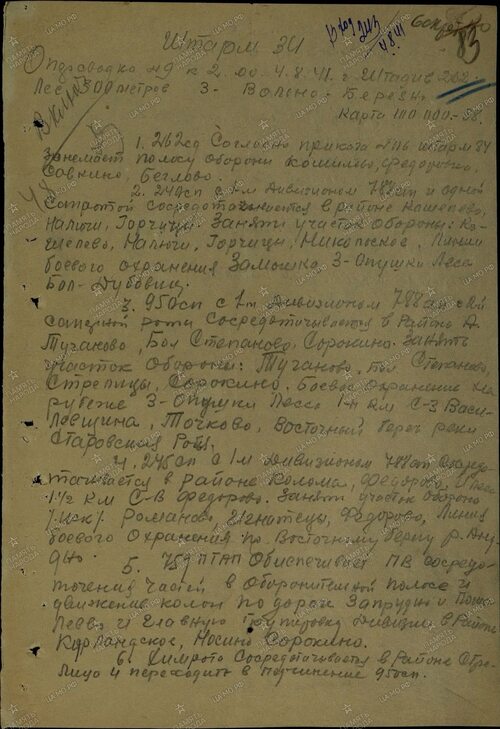 Штарм 34
Секретно
83
Вход 243
4.8.41
Оперсводка №9 к 2.00 4.8.41 г. Штадив 262
Лес 300 метров З-
Карта 100 000-38.
1. 262сд Согласно приказа штарм 34
Занемает полосу обороны Федосово,
Савкино, Беглово.
2. 240сп с дивизионом 788ап и одной
сапротой сосредотачивается в районе Кошелево,
Налючи, Горчицы. Занять участок обороны: Ко-
шелево, Налючи, Горчицы, Никольское, Линия
боевого охранения Замошка З-Опушка Леса
Бол-Дубовиц.
3. 950сп с 2м дивизионом 788ап с
саперной роты сосредотачивается в Районе д.
Тучаково, Бол Степаново, Сорокино. Занять
участок Обороны: Тучаково, Степаново,
Стрелицы, Сорокино. Боевое Охранение на
рубеже З-Опушки Леса 1-н км С-З Васи-
левщина, Точково, Восточный берег реки
Старовская Робья.
4. с 1м дивизионом 788ап Сосредо-
тачивается в районе Коломо, Федорово, и лес
1½ км С-В Федорово. Занять участок обороны
/иск/ Романово, Игнатецы, Федорово, Линия
боевого Охранения по Восточному берегу р.
5. ПТАП Обеспечивает ПВ сосредо-
точения частей в оборонительной полосе и
движение колон по дороге Запрудно и
и главную групировку дивизии в Районе
Курляндское, Носино Сорокино.
6. Химрота Сосредотачивается в Районе Стре-
лица и переходить в подчинение 950сп.